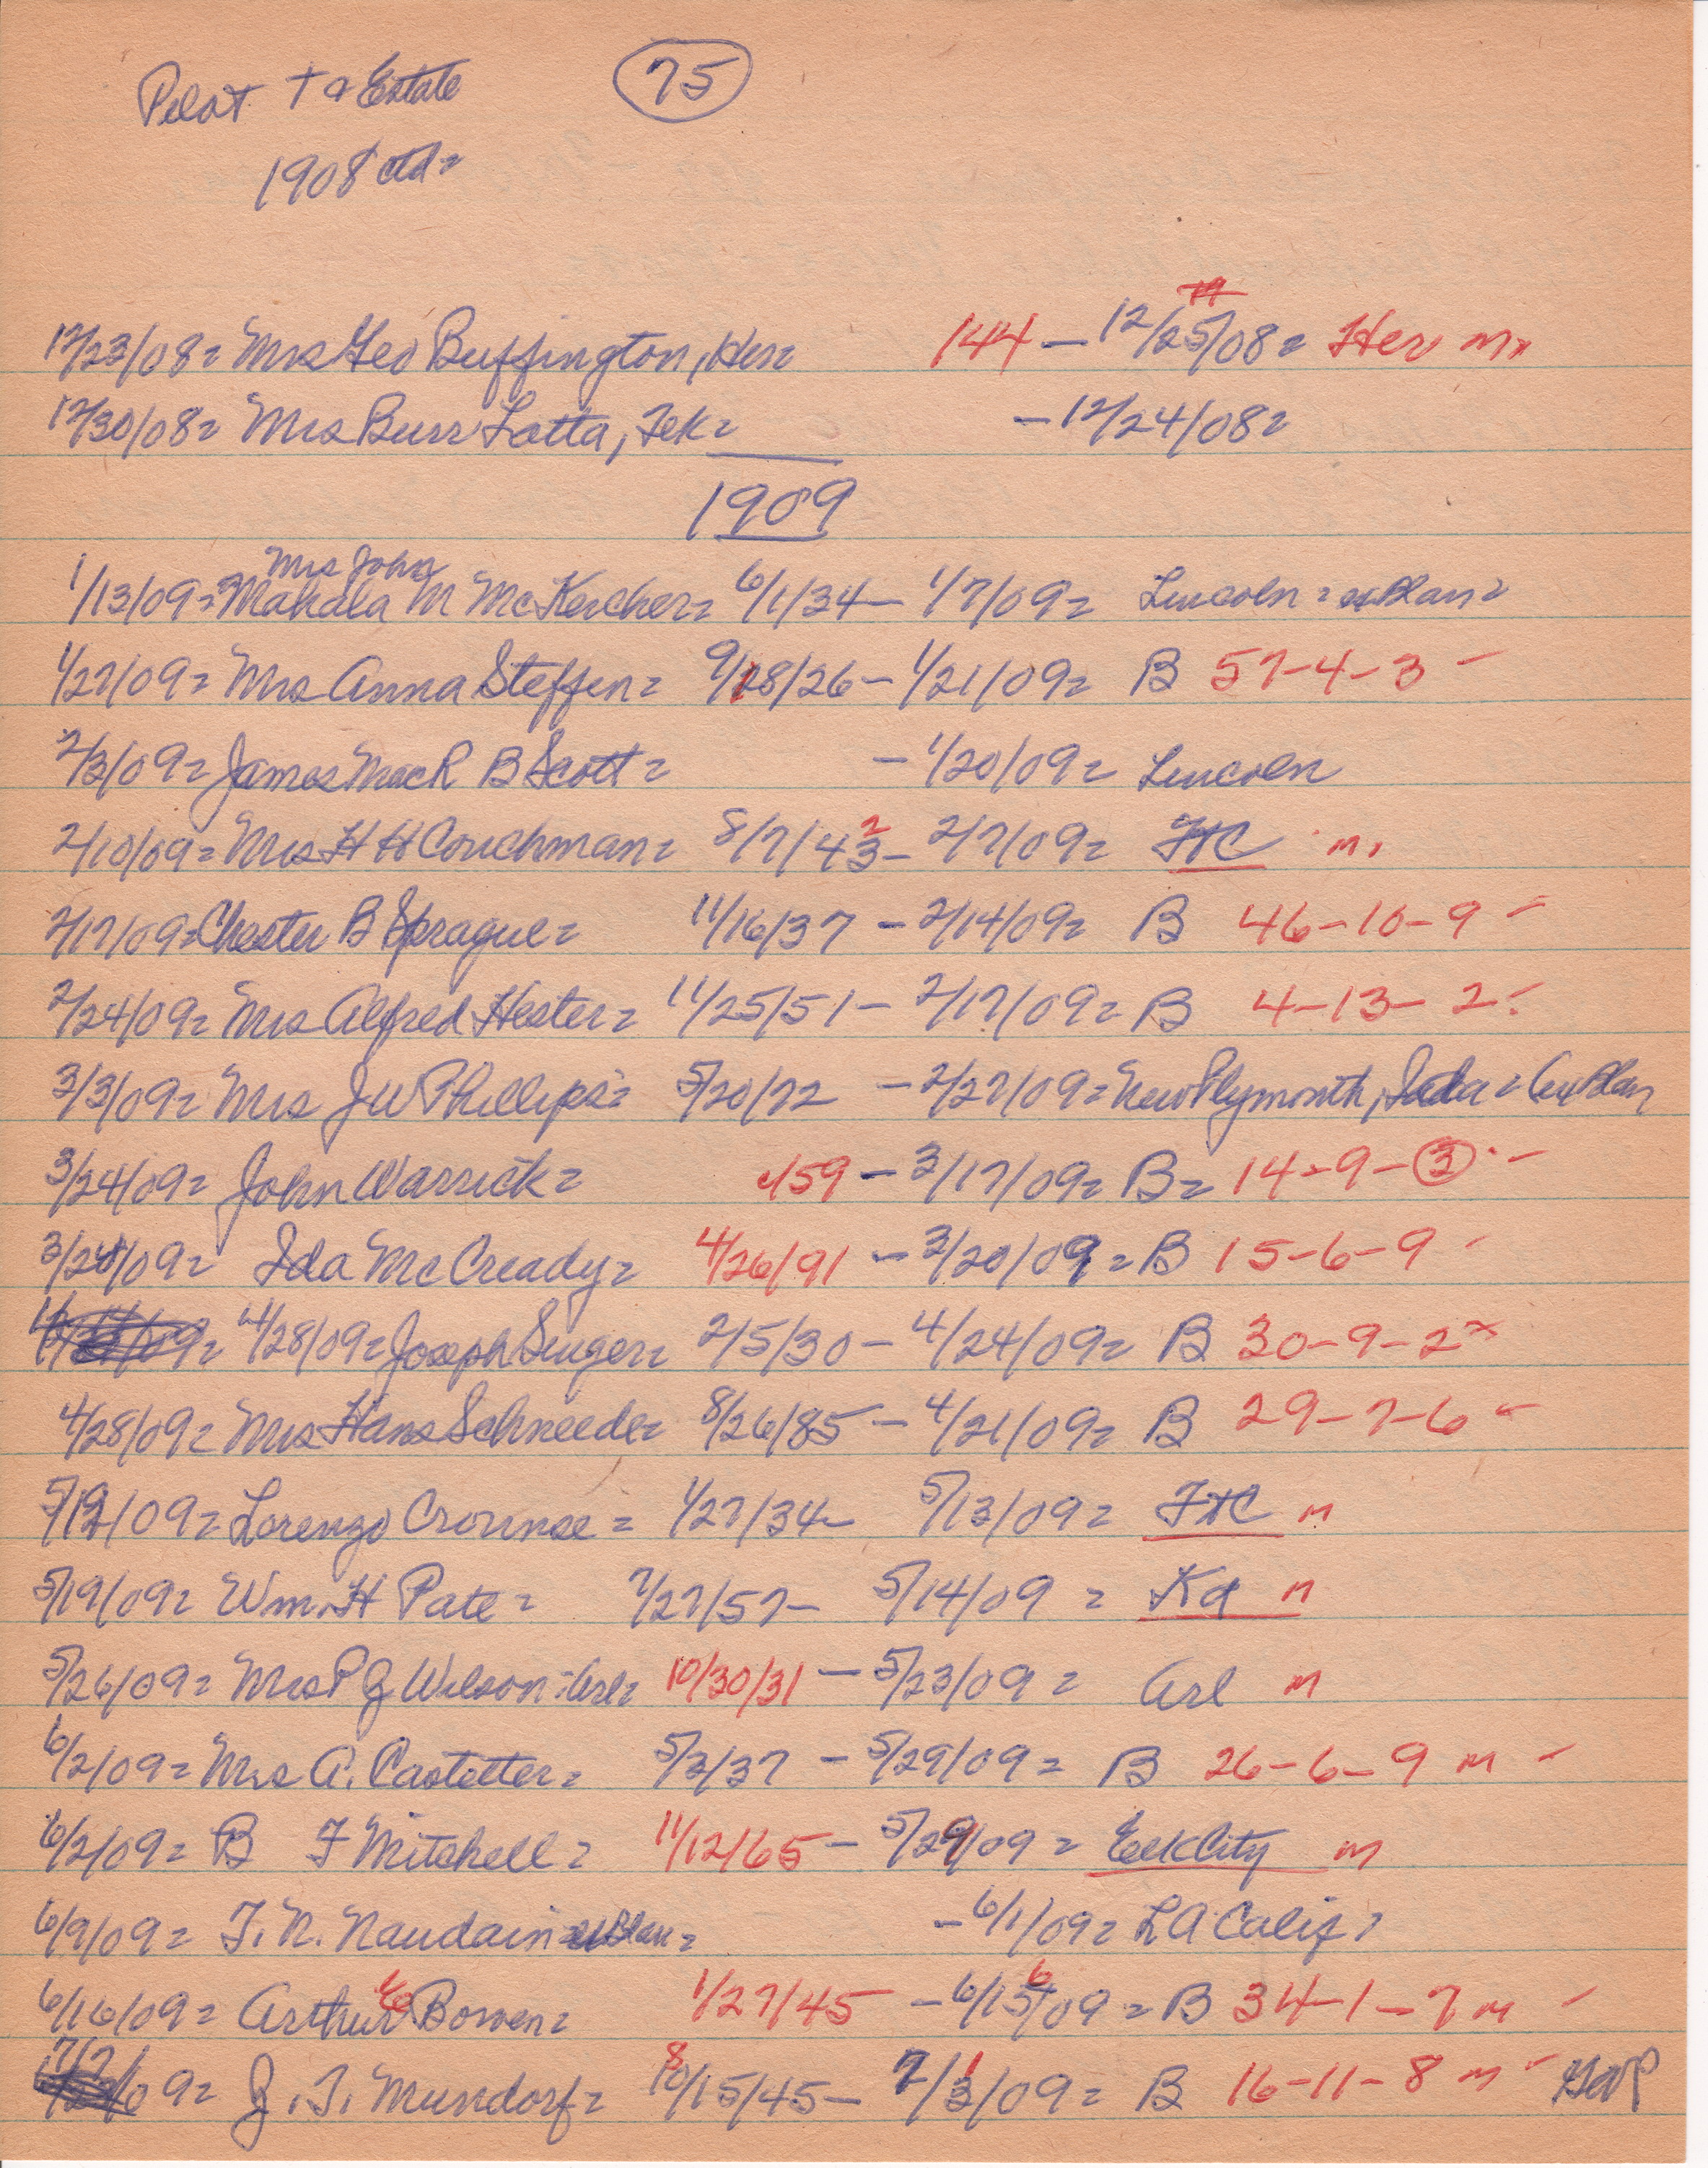 Pilot + a Estate 75
1908 ctd=
12/23/08= Mrs Geo Buffington, Her= 1844 - 12/25/08= Her m
12/30/08= Mrs Burr Latta, Tek= - 12/24/08=
1909
Mrs John
1/13/09= Mahala M McKercher= 6/1/34 - 1/7/09= Lincoln = exBlair=
1/27/09= Mrs Anna Steffen= 9/18/26 - 1/21/09= B 57-4-3 -
2/3/09= James MacR B Scott= - 1/20/09= Lincoln
2/10/09= Mrs H H Couchman= 8/7/43 2 - 2/7/09= FtC m
2/17/09= Chester B Sprague= 11/16/37 - 2/14/09= B 46-10-9 -
2/24/09= Mrs Alfred Hester= 11/25/51 - 2/17/09= B 4-13-2 -
3/3/09= Mrs J W Phillips= 5/20/72 - 2/27/09= New Plymouth, Ida = exBlair
3/24/09= John Warrick= 59 - 3/17/09= B= 14-9-3 -
3/24/09= Ida McCready= 4/26/91 - 3/20/09= B 15-6-9 -
4/28/09= Joseph Singer= 2/5/30 - 4/24/09= B 30-9-2
4/28/09= Mrs Hans Schneede= 8/26/85 - 4/21/09= B 29-7-6 -
5/19/09= Lorenzo Crounse= 1/27/34 - 5/13/09= FtC m
5/19/09= Wm. H Pate= 7/27/57 - 5/14/09= Ka m
5/26/09= Mrs P J Wilson=Arl= 10/30/31 - 5/23/09= Arl m
6/2/09= Mrs A. Castetter= 5/3/37 - 5/29/09= B 26-6-9 m -
6/2/09= B F Mitchell= 11/12/65 - 5/29/09= Elk City m
6/9/09= T. N. Naudain=exBlair= - 6/1/09= LA Calif=
6/16/09= Arthur C Bowen= 1/27/45 - 6/15/09= B 34-1-7 m -
7/7/09= J. T. Mundorf= 8 10/15/45 - 7/3/09= B 16-11-8 m - GAR